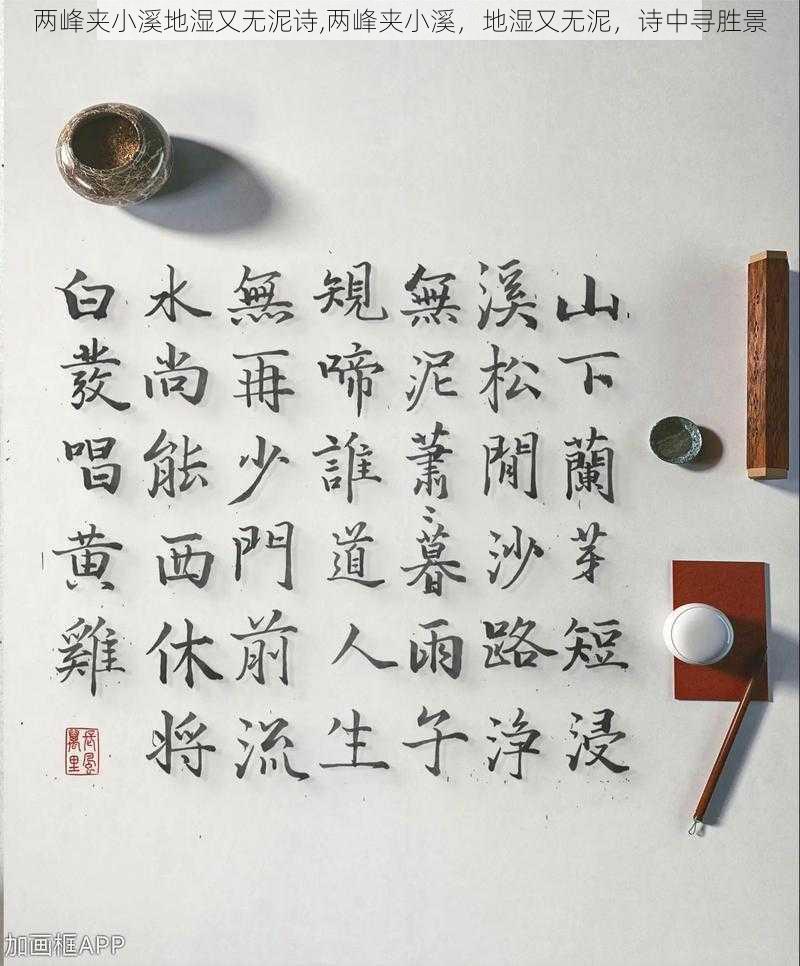 两峰夹小溪地湿又无泥诗,两峰夹小溪，地湿又无泥，诗中寻胜景
山下蘭芽短浸
溪松閒沙路淨
無泥蕭〻暮雨子
規啼誰道人生
無再少門前流
水尚能西休將
白發唱黄雞
長風萬里
加画框APP